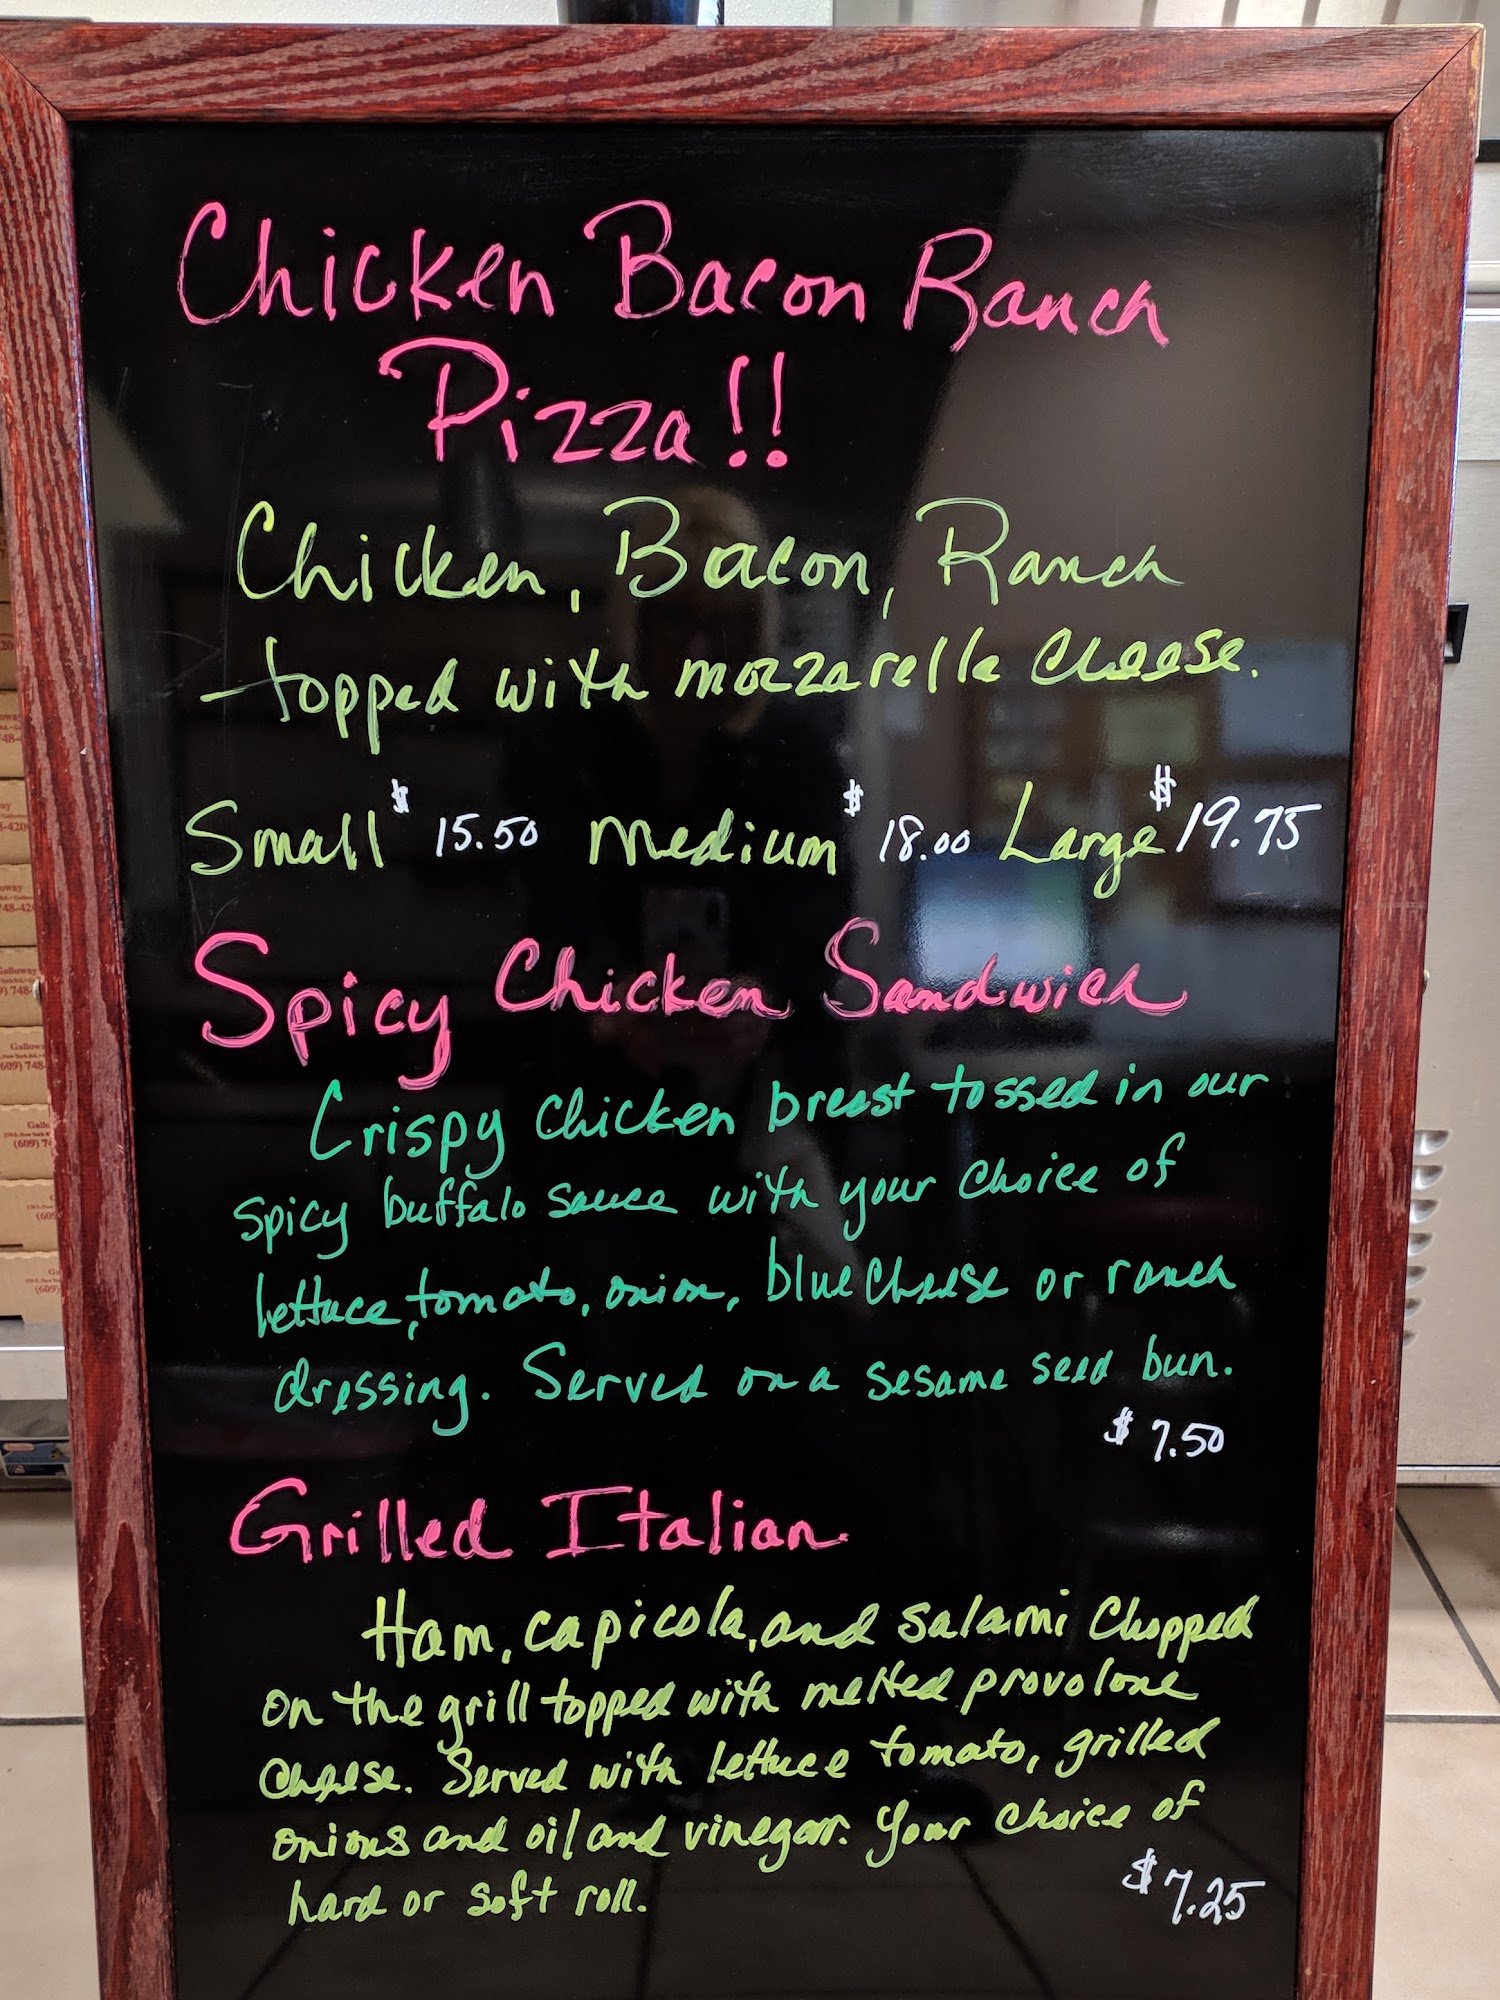 Chicken Bacon Ranch
Pizza!!
Chicken, Bacon, Ranch
topped with mozzarella cheese.
Small $15.50 medium $18.00 Large $19.75
Spicy Chicken Sandwich
Crispy chicken breast tossed in our
spicy buffalo sauce with your choice of
lettuce, tomato, onion, blue cheese or ranch
dressing. Served on a sesame seed bun.
$7.50
Grilled Italian
Ham, capicola, and salami chopped
on the grill topped with melted provolone
cheese. Served with lettuce tomato, grilled
onions and oil and vinegar. Your choice of
hard or soft roll.
$7.25
Galloway
(609) 748-